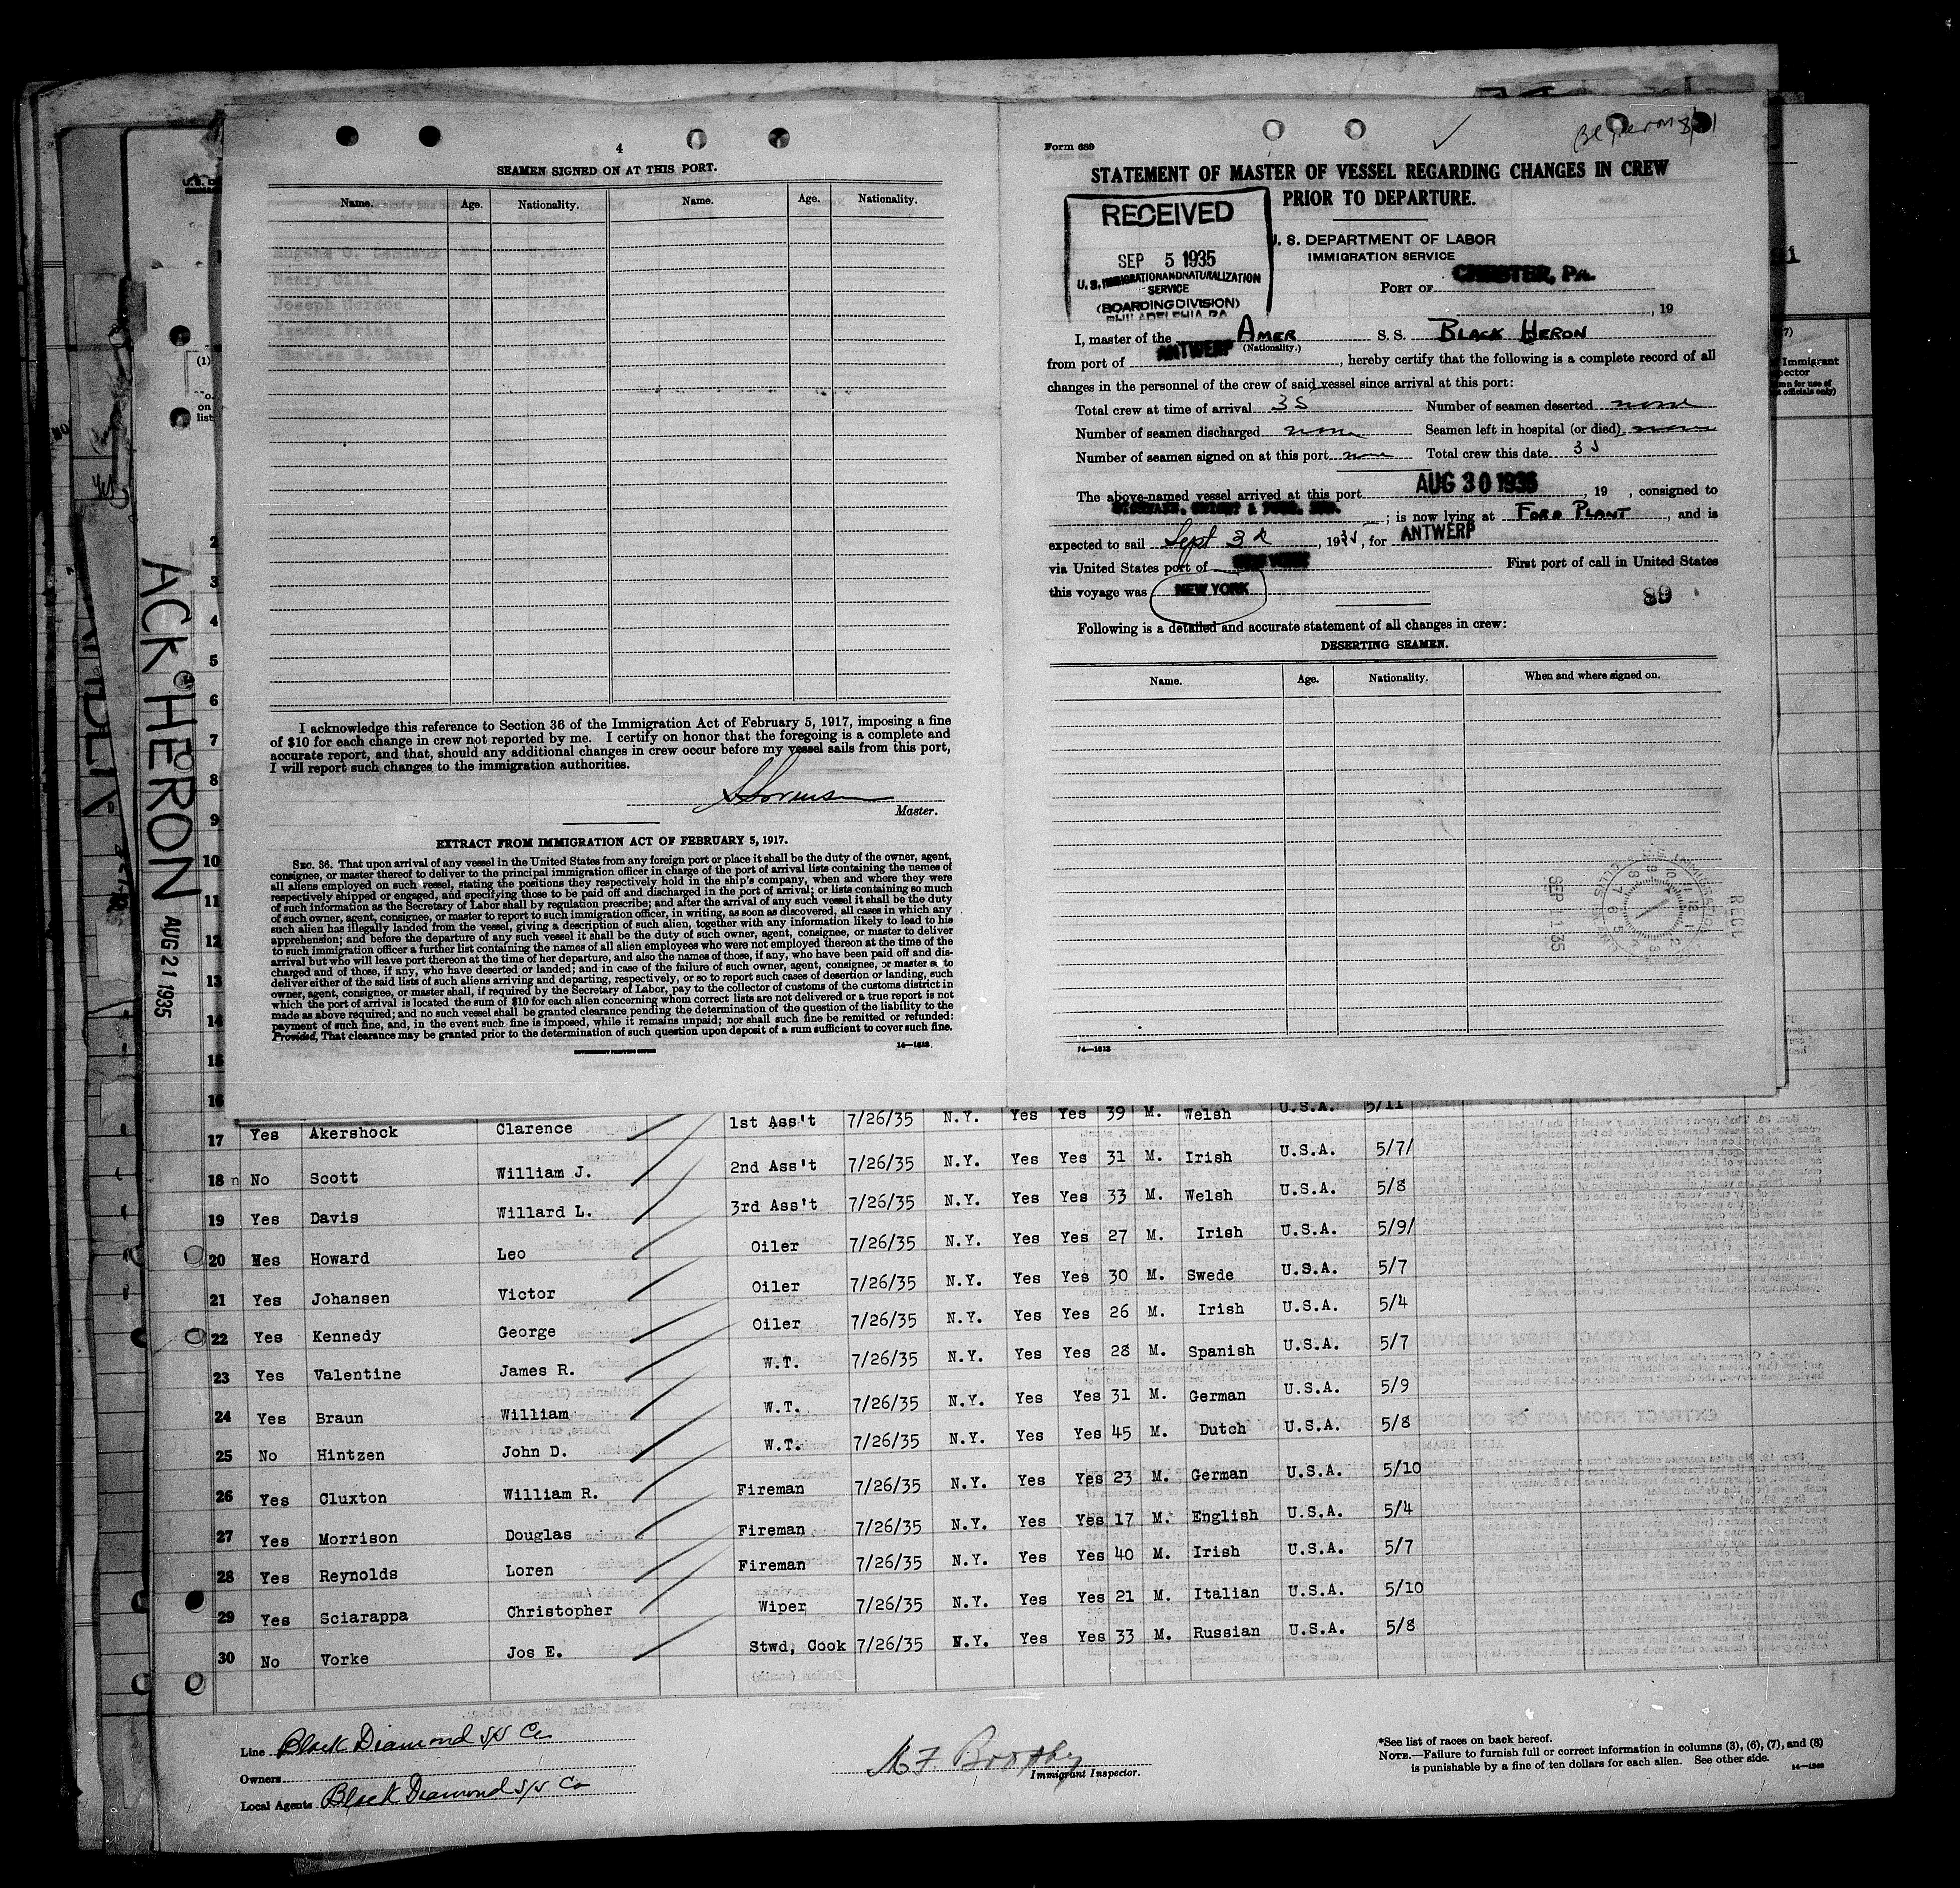 4
SEAMEN SIGNED ON AT THIS PORT.
Name. Age. Nationality. Name. Age. Nationality.
I acknowledge this reference to Section 36 of the Immigration Act of February 5, 1917, imposing a fine
of $10 for each change in crew not reported by me. I certify on honor that the foregoing is a complete and
accurate report, and that, should any additional changes in crew occur before my vessel sails from this port,
I will report such changes to the immigration authorities.
Master.
EXTRACT FROM IMMIGRATION ACT OF FEBRUARY 5, 1917.
SEC. 36. That upon arrival of any vessel in the United States from any foreign port or place it shall be the duty of the owner, agent,
consignee, or master thereof to deliver to the principal immigration officer in charge of the port of arrival lists containing the names of
all aliens employed on such vessel, stating the positions they respectively hold in the ship's company, when and where they were
respectively shipped or engaged, and specifying those to be paid off and discharged in the port of arrival; or lists containing so much
of such information as the Secretary of Labor shall by regulation prescribe; and after the arrival of any such vessel it shall be the duty
of such owner, agent, consignee, or master to report to such immigration officer, in writing, as soon as discovered, all cases in which any
such alien has illegally landed from the vessel, giving a description of such alien, together with any information likely to lead to his
apprehension; and before the departure of any such vessel it shall be the duty of such owner, agent, consignee, or master to deliver
to such immigration officer a further list containing the names of all alien employees who were not employed thereon at the time of the
arrival but who will leave port thereon at the time of her departure, and also the names of those, if any, who have been paid off and dis-
charged and of those, if any, who have deserted or landed; and in case of the failure of such owner, agent, consignee, or master to
deliver either of the said lists of such aliens arriving and departing, respectively, or so to report such cases of desertion or landing, such
owner, agent, consignee, or master shall, if required by the Secretary of Labor, pay to the collector of customs of the customs district in
which the port of arrival is located the sum of $10 for each alien concerning whom correct lists are not delivered or a true report is not
made as above required; and no such vessel shall be granted clearance pending the determination of the question of the liability to the
payment of such fine, and, in the event such fine is imposed, while it remains unpaid; nor shall such fine be remitted or refunded:
Provided, That clearance may be granted prior to the determination of such question upon deposit of a sum sufficient to cover such fine.
GOVERNMENT PRINTING OFFICE 14—1613
Form 689
STATEMENT OF MASTER OF VESSEL REGARDING CHANGES IN CREW
PRIOR TO DEPARTURE.
RECEIVED
SEP 5 1935
U. S. IMMIGRATION AND NATURALIZATION
SERVICE
(BOARDING DIVISION)
PHILADELPHIA PA
U. S. DEPARTMENT OF LABOR
IMMIGRATION SERVICE
PORT OF CHESTER, PA.
, 19
I, master of the AMER S. S. BLACK HERON
(Nationality.)
from port of ANTWERP, hereby certify that the following is a complete record of all
changes in the personnel of the crew of said vessel since arrival at this port:
Total crew at time of arrival 35 Number of seamen deserted none
Number of seamen discharged none Seamen left in hospital (or died) none
Number of seamen signed on at this port none Total crew this date 35
The above-named vessel arrived at this port AUG 30 1935, 19 , consigned to
; is now lying at FORD PLANT, and is
expected to sail Sept 3d, 1935, for ANTWERP
via United States port of NEW YORK First port of call in United States
this voyage was NEW YORK
89
Following is a detailed and accurate statement of all changes in crew:
DESERTING SEAMEN.
Name. Age. Nationality. When and where signed on.
SEP 11 35
14—1613
ACK HERON AUG 21 1935
(1)
Immigrant
2
3
4
5
6
7
8
9
10
11
12
13
14
15
16
17 Yes Akershock Clarence 1st Ass't 7/26/35 N.Y. Yes Yes 39 M. Welsh U.S.A. 5/11
18 n No Scott William J. 2nd Ass't 7/26/35 N.Y. Yes Yes 31 M. Irish U.S.A. 5/7/
19 Yes Davis Willard L. 3rd Ass't 7/26/35 N.Y. Yes Yes 33 M. Welsh U.S.A. 5/8
20 Nes Howard Leo Oiler 7/26/35 N.Y. Yes Yes 27 M. Irish U.S.A. 5/9/
21 Yes Johansen Victor Oiler 7/26/35 N.Y. Yes Yes 30 M. Swede U.S.A. 5/7
22 Yes Kennedy George Oiler 7/26/35 N.Y. Yes Yes 26 M. Irish U.S.A. 5/4
23 Yes Valentine James R. W.T. 7/26/35 N.Y. Yes Yes 28 M. Spanish U.S.A. 5/7
24 Yes Braun William W.T. 7/26/35 N.Y. Yes Yes 31 M. German U.S.A. 5/9
25 No Hintzen John D. W.T. 7/26/35 N.Y. Yes Yes 45 M. Dutch U.S.A. 5/8
26 Yes Cluxton William R. Fireman 7/26/35 N.Y. Yes Yes 23 M. German U.S.A. 5/10
27 Yes Morrison Douglas Fireman 7/26/35 N.Y. Yes Yes 17 M. English U.S.A. 5/4
28 Yes Reynolds Loren Fireman 7/26/35 N.Y. Yes Yes 40 M. Irish U.S.A. 5/7
29 Yes Sciarappa Christopher Wiper 7/26/35 N.Y. Yes Yes 21 M. Italian U.S.A. 5/10
30 No Vorke Jos E. Stwd, Cook 7/26/35 N.Y. Yes Yes 33 M. Russian U.S.A. 5/8
Line Black Diamond S/S Co
Owners
Local Agents Black Diamond S/S Co
Immigrant Inspector.
*See list of races on back hereof.
NOTE.—Failure to furnish full or correct information in columns (3), (6), (7), and (8)
is punishable by a fine of ten dollars for each alien. See other side.
14—1240